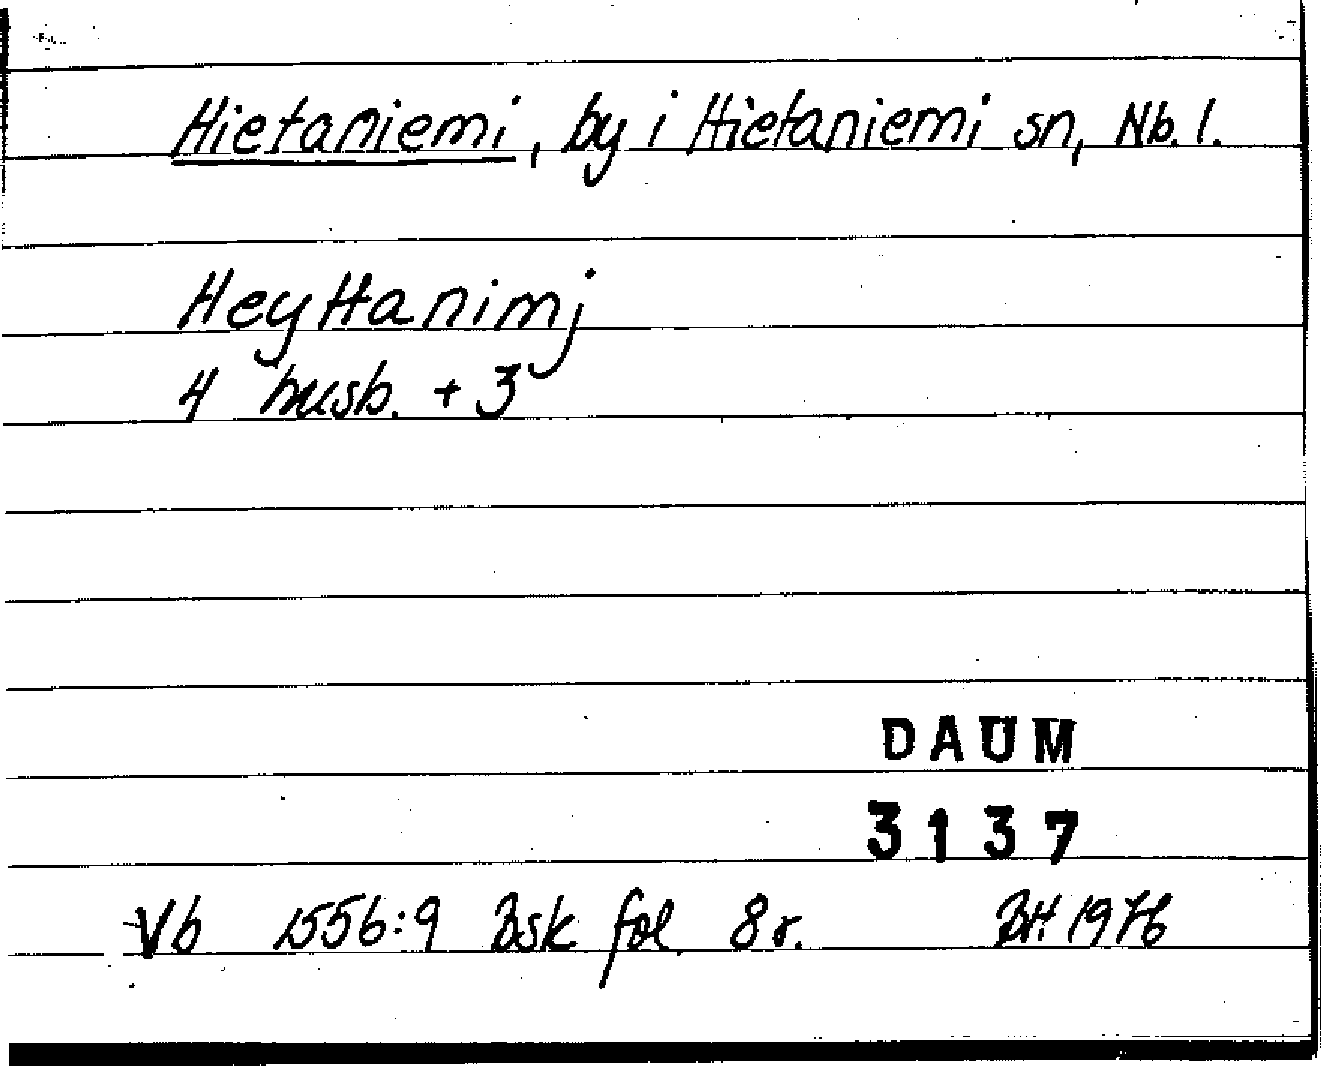 Hietaniemi, by i Hietaniemi sn, Nb. l.
Heyttanimj
4 husb. + 3
DAUM
3137
Vb 1556:9 Bsk fol. 8 r. BH 1976